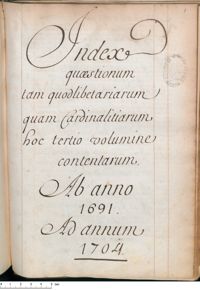 Index
quæstionum
tam quodlibetariarum
quam Cardinalitiarum
hoc tertio volumine
contentarum.
Ab anno
1691.
Ad annum
1704.